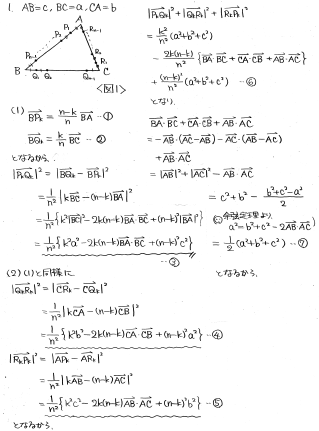 1. AB=c, BC=a, CA=b
A
P₁
P₂
R_{n-1}
P_{n-1}
R₂
R₁
B
Q₁ Q₂
Q_{n-1}
C
<図1>
(1) \overrightarrow{BP_k} = \frac{n-k}{n} \overrightarrow{BA} …①
\overrightarrow{BQ_k} = \frac{k}{n} \overrightarrow{BC} …②
となるから、
|\overrightarrow{P_kQ_k}|² = |\overrightarrow{BQ_k} - \overrightarrow{BP_k}|²
= \frac{1}{n²} |k\overrightarrow{BC} - (n-k)\overrightarrow{BA}|²
= \frac{1}{n²} {k²|\overrightarrow{BC}|² - 2k(n-k)\overrightarrow{BA}·\overrightarrow{BC} + (n-k)²|\overrightarrow{BA}|²}
= \frac{1}{n²} {k²a² - 2k(n-k)\overrightarrow{BA}·\overrightarrow{BC} + (n-k)²c²}
…③
(2) (1)と同様に
|\overrightarrow{Q_kR_k}|² = |\overrightarrow{CR_k} - \overrightarrow{CQ_k}|²
= \frac{1}{n²} |k\overrightarrow{CA} - (n-k)\overrightarrow{CB}|²
= \frac{1}{n²} {k²b² - 2k(n-k)\overrightarrow{CA}·\overrightarrow{CB} + (n-k)²a²} …④
|\overrightarrow{R_kP_k}|² = |\overrightarrow{AP_k} - \overrightarrow{AR_k}|²
= \frac{1}{n²} |k\overrightarrow{AB} - (n-k)\overrightarrow{AC}|²
= \frac{1}{n²} {k²c² - 2k(n-k)\overrightarrow{AB}·\overrightarrow{AC} + (n-k)²b²} …⑤
となるから、
|\overrightarrow{P_kQ_k}|² + |\overrightarrow{Q_kR_k}|² + |\overrightarrow{R_kP_k}|²
= \frac{k²}{n²} (a²+b²+c²)
- \frac{2k(n-k)}{n²} {\overrightarrow{BA}·\overrightarrow{BC} + \overrightarrow{CA}·\overrightarrow{CB} + \overrightarrow{AB}·\overrightarrow{AC}}
+ \frac{(n-k)²}{n²} (a²+b²+c²) …⑥
となり、
\overrightarrow{BA}·\overrightarrow{BC} + \overrightarrow{CA}·\overrightarrow{CB} + \overrightarrow{AB}·\overrightarrow{AC}
= -\overrightarrow{AB}·(\overrightarrow{AC}-\overrightarrow{AB}) - \overrightarrow{AC}·(\overrightarrow{AB}-\overrightarrow{AC})
+ \overrightarrow{AB}·\overrightarrow{AC}
= |\overrightarrow{AB}|² + |\overrightarrow{AC}|² - \overrightarrow{AB}·\overrightarrow{AC}
= c² + b² - \frac{b²+c²-a²}{2}
(∵余弦定理より
a²=b²+c²-2\overrightarrow{AB}·\overrightarrow{AC})
= \frac{1}{2} (a²+b²+c²) …⑦
となるから、